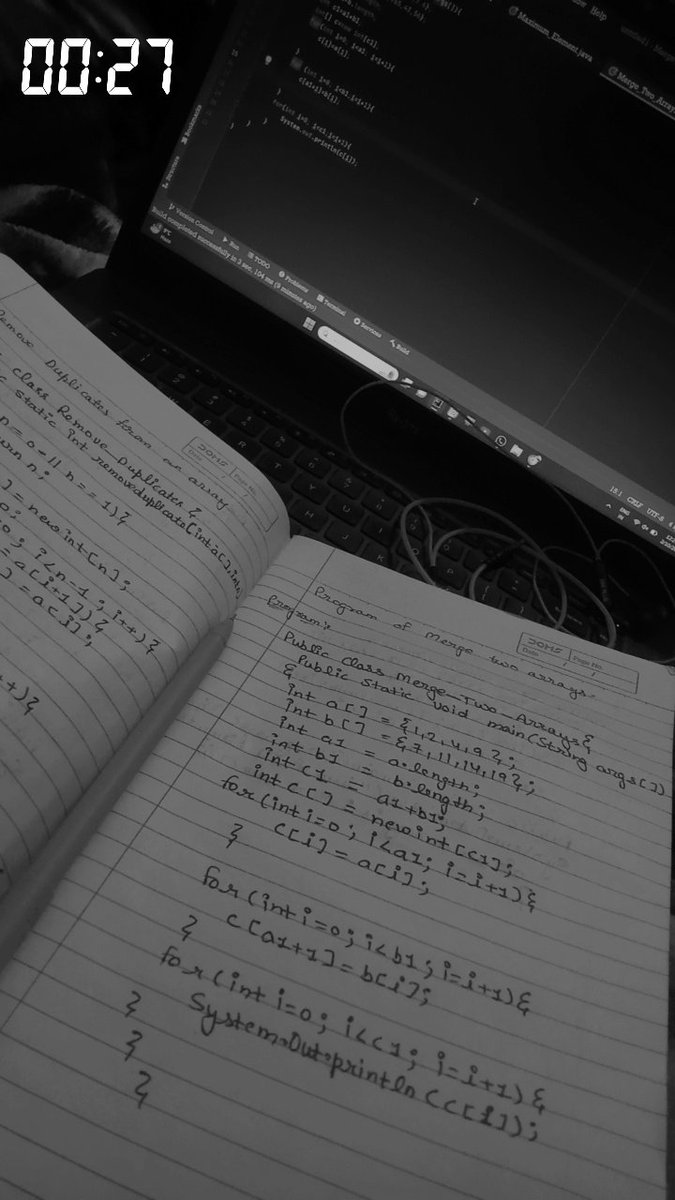 00:27
Help
Maximum_Element.java
Merge_Two_Array
c[i]=a[i];
for(int i=0; i<c1;i=i+1){
System.out.println(c[i]);
Bookmarks
Structure
Version Control
Run
TODO
Problems
Terminal
Services
Build
Build completed successfully in 2 sec, 104 ms (9 minutes ago)
CRLF UTF-8
Remove Duplicates from an array
class Remove_Duplicates {
static int removeduplicate(int a[], int
n = = 0 || n = = 1) {
n;
] = new int [n];
i<n-1 ; i++) {
= a[i+1]) {
] = a[i];
++) {
JOMS
Date
Page No.
Program of Merge two arrays-
JOMS
Date
Page No.
Program:
Public Class Merge_Two_Arrays {
Public Static Void main(String args[])
{
int a [] = {1,2,4,9};
int b [] = {7,11,14,19};
int a1 = a.length;
int b1 = b.length;
int c1 = a1+b1;
int c[] = new int [c1];
for(int i=0; i<a1; i=i+1) {
c[i] = a[i];
}
for(int i=0; i<b1; i=i+1) {
c[a1+1] = b[i];
}
for(int i=0; i<c1; i=i+1) {
System.Out.println(c[i]);
}
}
}